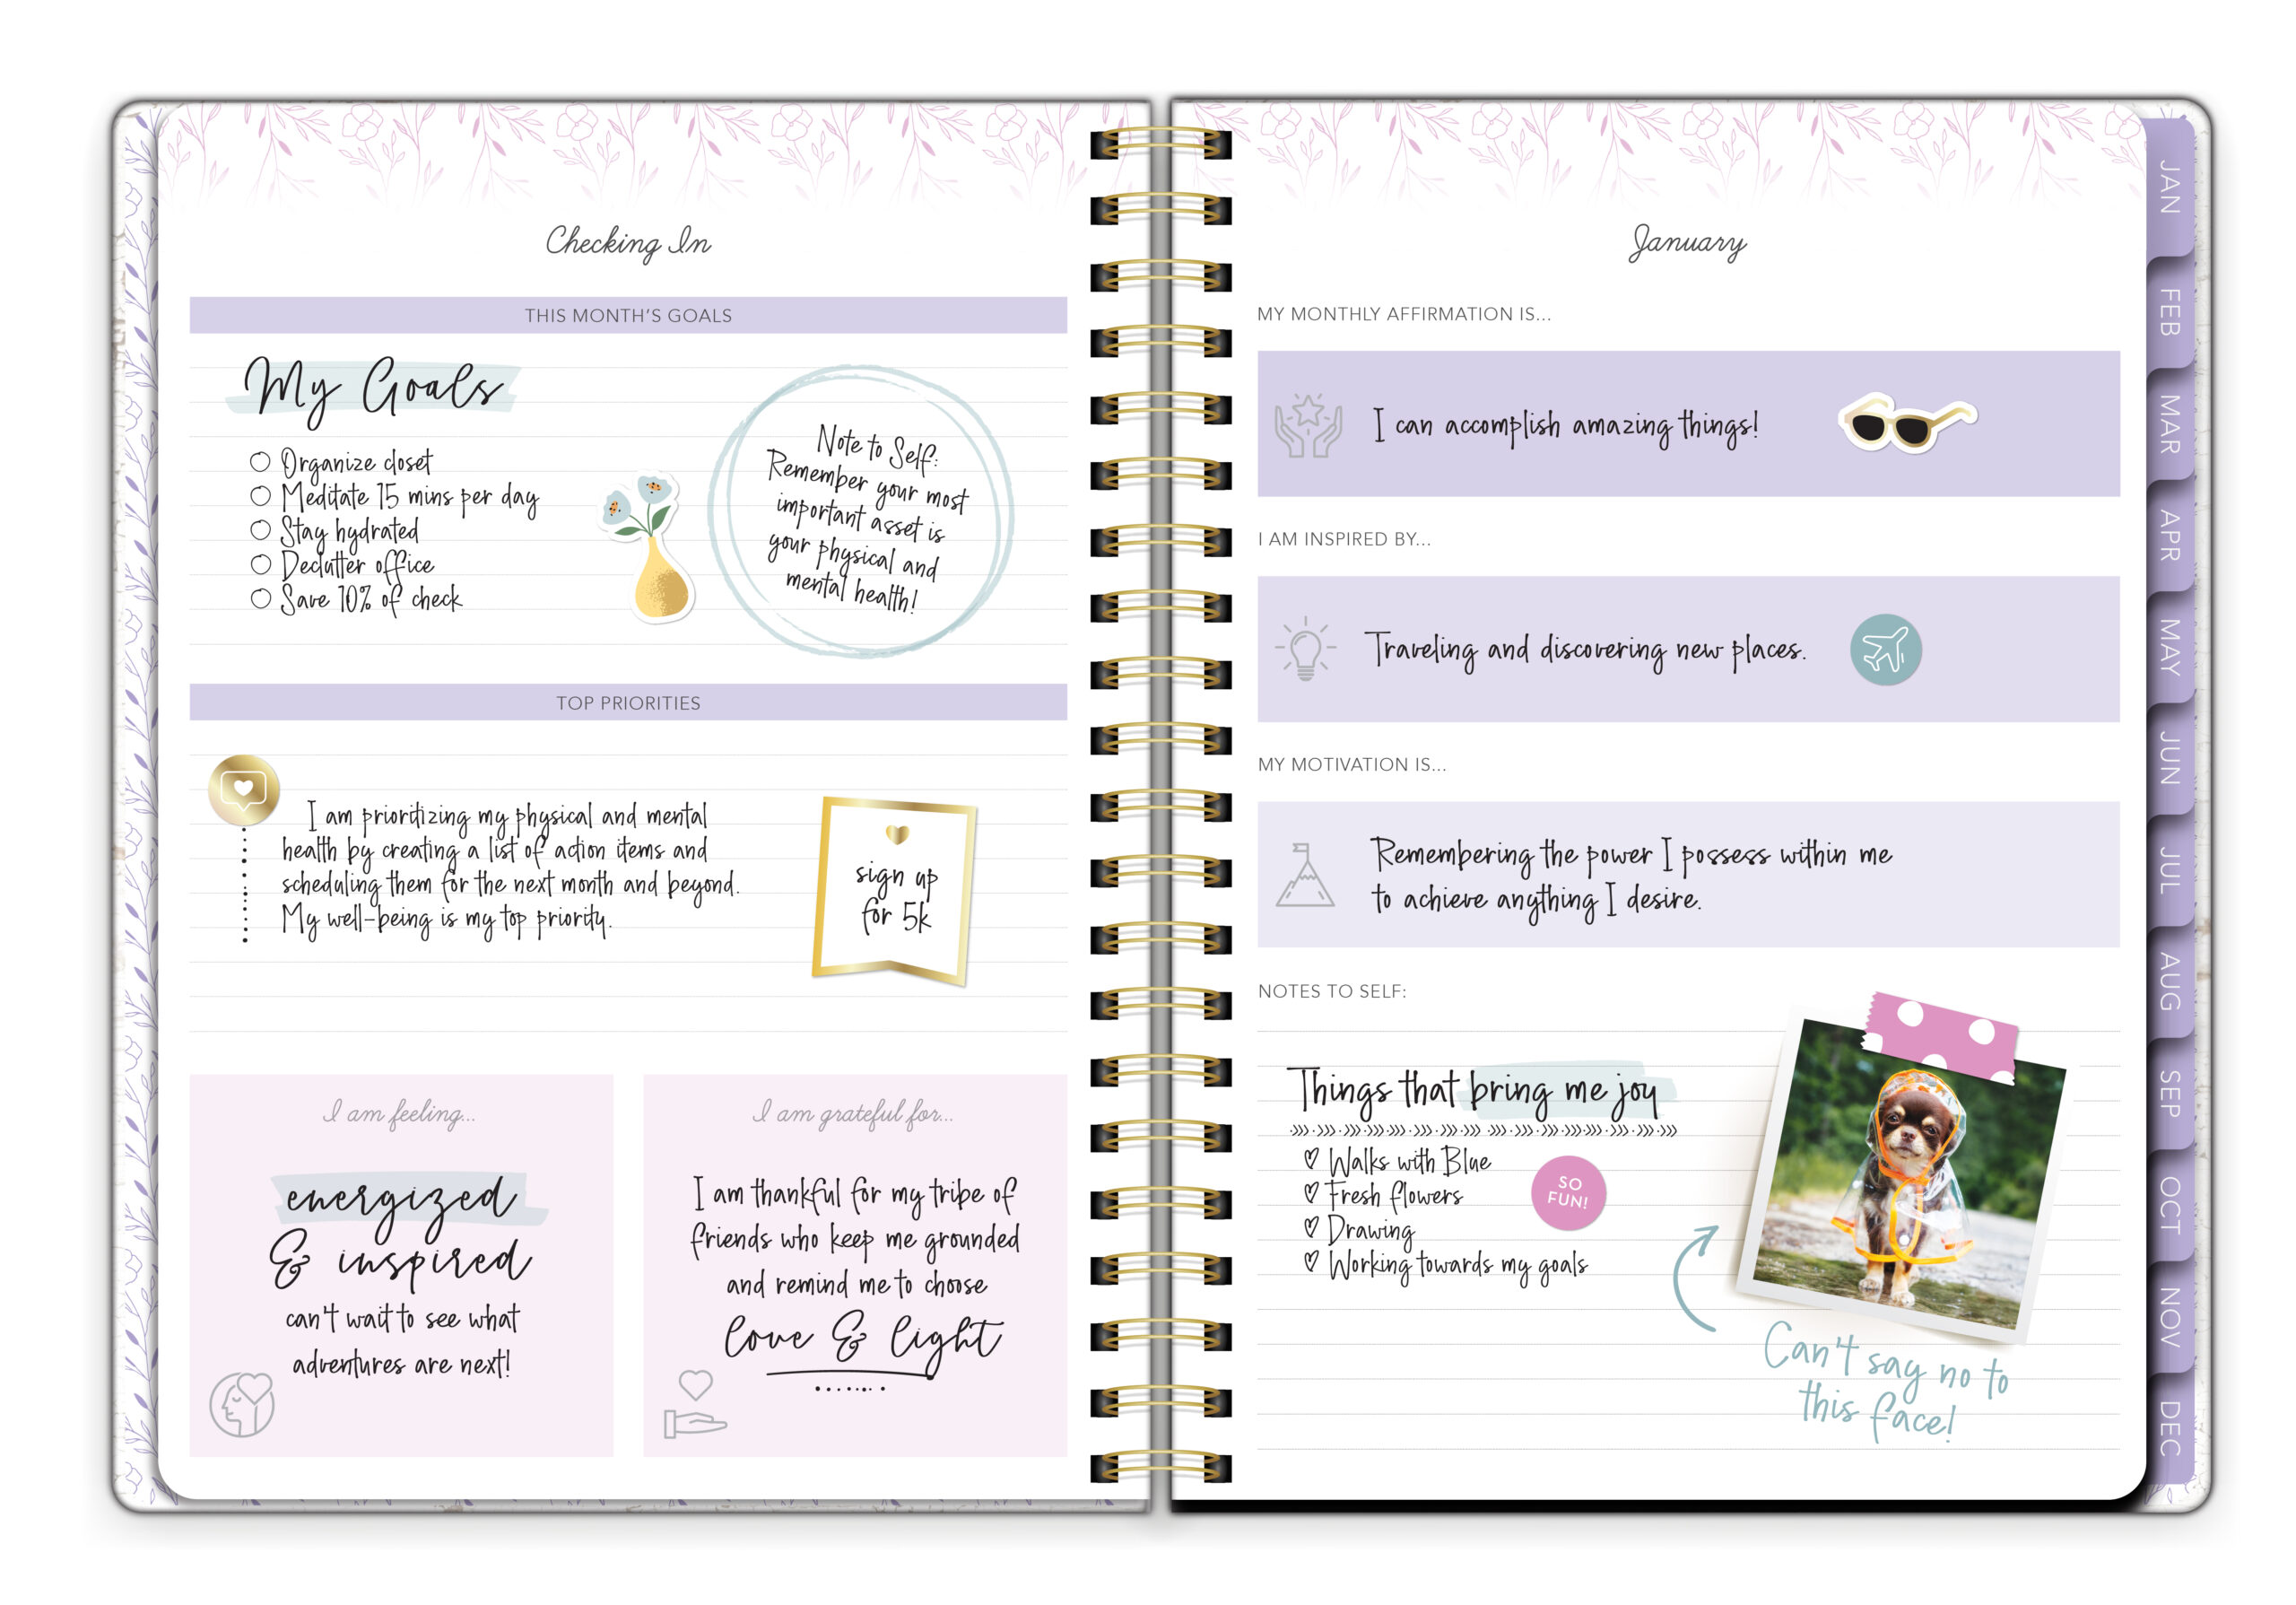 Checking In
THIS MONTH'S GOALS
My Goals
Organize closet
Meditate 15 mins per day
Stay hydrated
Declutter office
Save 10% of check
Note to Self:
Remember your most
important asset is
your physical and
mental health!
TOP PRIORITIES
I am prioritizing my physical and mental
health by creating a list of action items and
scheduling them for the next month and beyond.
My well-being is my top priority.
sign up
for 5k
I am feeling...
energized
& inspired
can't wait to see what
adventures are next!
I am grateful for...
I am thankful for my tribe of
friends who keep me grounded
and remind me to choose
love & light
January
MY MONTHLY AFFIRMATION IS...
I can accomplish amazing things!
I AM INSPIRED BY...
Traveling and discovering new places.
MY MOTIVATION IS...
Remembering the power I possess within me
to achieve anything I desire.
NOTES TO SELF:
Things that bring me joy
Walks with Blue
Fresh flowers
Drawing
Working towards my goals
SO
FUN!
Can't say no to
this face!
JAN
FEB
MAR
APR
MAY
JUN
JUL
AUG
SEP
OCT
NOV
DEC